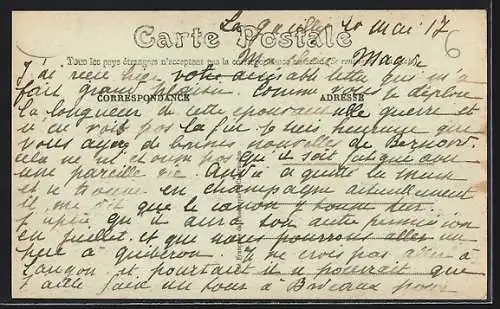 La 10 mai 17
Carte Postale
Tous les pays étrangers n'acceptent pas la
6
J'ai reçu hier votre aimable lettre qui m'a
fait grand plaisir. Comme vous je déplore
CORRESPONDANCE ADRESSE
la longueur de cette épouvantable guerre et
n'en vois pas la fin. Je suis heureuse que
vous ayez de bonnes nouvelles de
cela ne m'étonne pas qu'il soit fatigué avec
une pareille vie. André a quitté la
et se trouve en Champagne actuellement
il me dit que le canon y tonne dur.
J'espère qu'il aura son autre permission
en juillet et que nous pourrons aller un
peu à Quiberon. Je ne crois pas aller à
Langon et pourtant il se pourrait que
j'aille faire un tour à Bordeaux pour